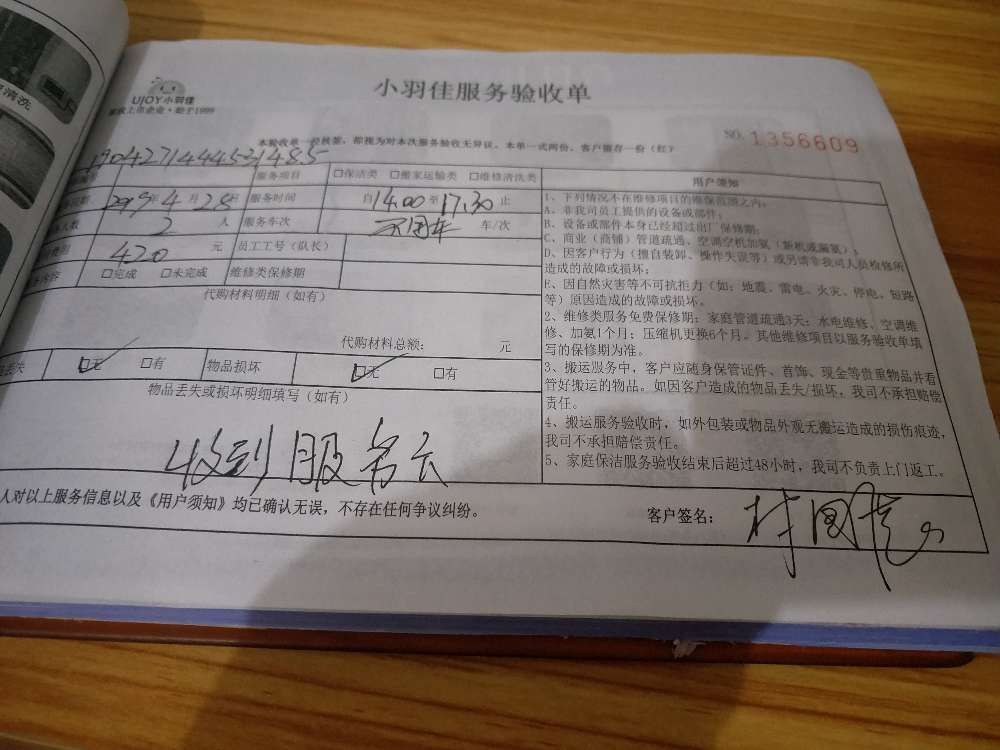 清洗
UJOY小羽佳
家政上市企业·始于1999
小羽佳服务验收单
NO. 1356609
本验收单一经核签，即视为对本次服务验收无异议。本单一式两份，客户留存一份（红）
服务项目 □保洁类 □搬家运输类 □维修清洗类
2019年4月28日 服务时间 自14:00至17:30止
人数 2 人 服务车次 车/次
420 元 员工工号（队长）
□完成 □未完成 维修类保修期
代购材料明细（如有）
代购材料总额： 元
丢失 □无 □有 物品损坏 □无 □有
物品丢失或损坏明细填写（如有）
收到服务
人对以上服务信息以及《用户须知》均已确认无误，不存在任何争议纠纷。
用户须知
1、下列情况不在维修项目的维保范围之内：
A、非我司员工提供的设备或部件；
B、设备或部件本身已经超过出厂保修期；
C、商业（商铺）管道疏通、空调空机加氨（新机或漏氨）；
D、因客户行为（擅自装卸、操作失误等）或另请非我司人员检修所
造成的故障或损坏；
E、因自然灾害等不可抗拒力（如：地震、雷电、火灾、停电、短路
等）原因造成的故障或损坏。
2、维修类服务免费保修期：家庭管道疏通3天；水电维修、空调维
修、加氨1个月；压缩机更换6个月。其他维修项目以服务验收单填
写的保修期为准。
3、搬运服务中，客户应随身保管证件、首饰、现金等贵重物品并看
管好搬运的物品。如因客户造成的物品丢失/损坏，我司不承担赔偿
责任。
4、搬运服务验收时，如外包装或物品外观无搬运造成的损伤痕迹，
我司不承担赔偿责任。
5、家庭保洁服务验收结束后超过48小时，我司不负责上门返工。
客户签名：